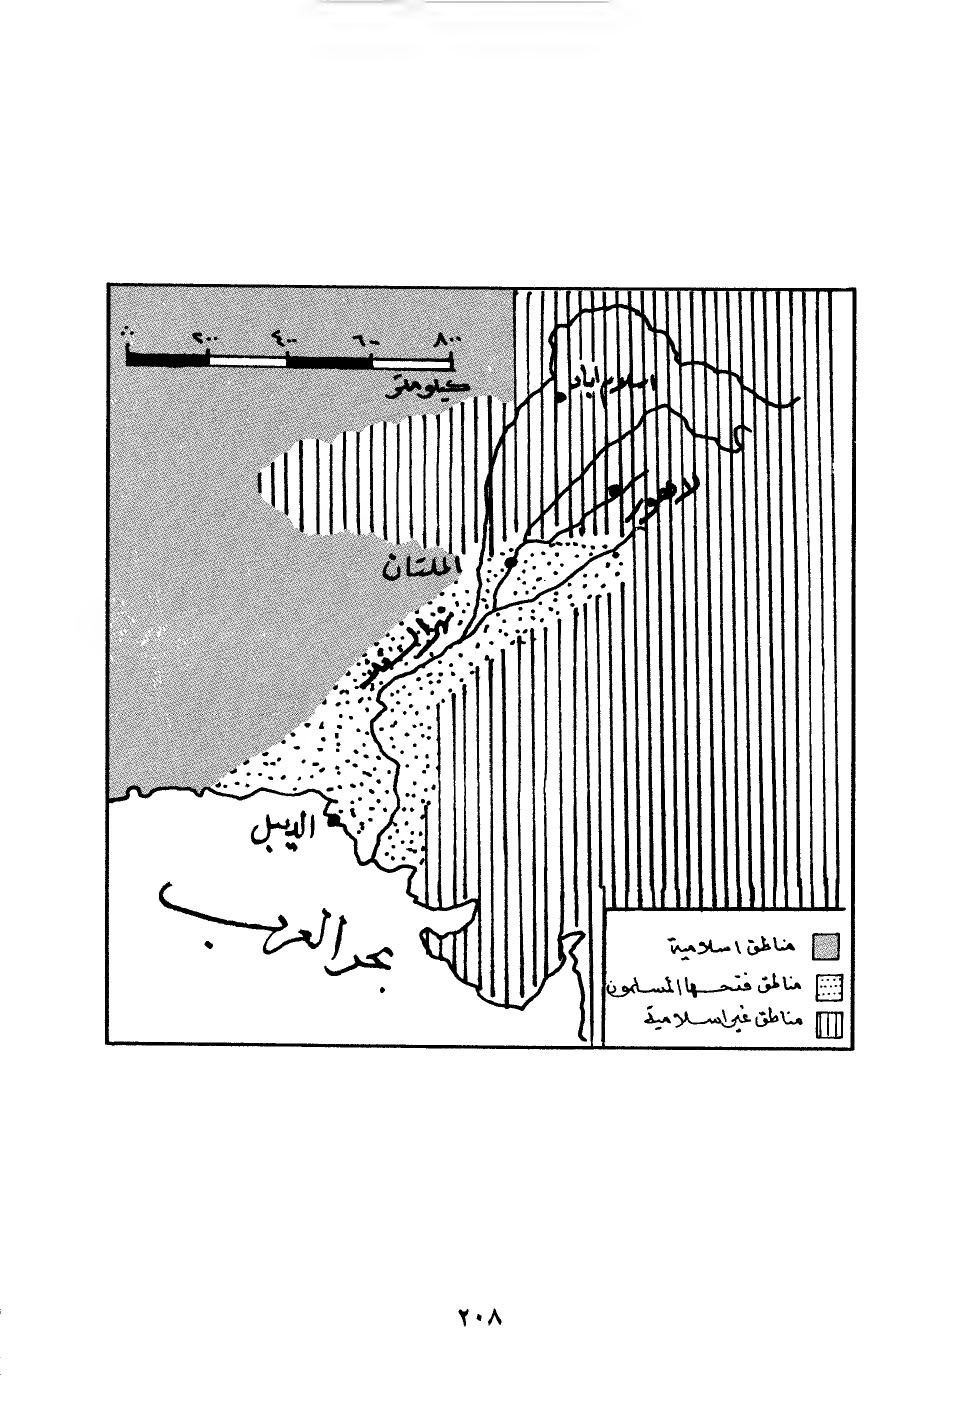 ٠ ٢٠٠ ٤٠٠ ٦٠٠ ٨٠٠
كيلو متر
اسلام اباد
لاهور
الملتان
نهر السند
الديبل
بحر العرب
مناطق اسلامية
مناطق فتحها المسلمون
مناطق غير اسلامية
٢٠٨